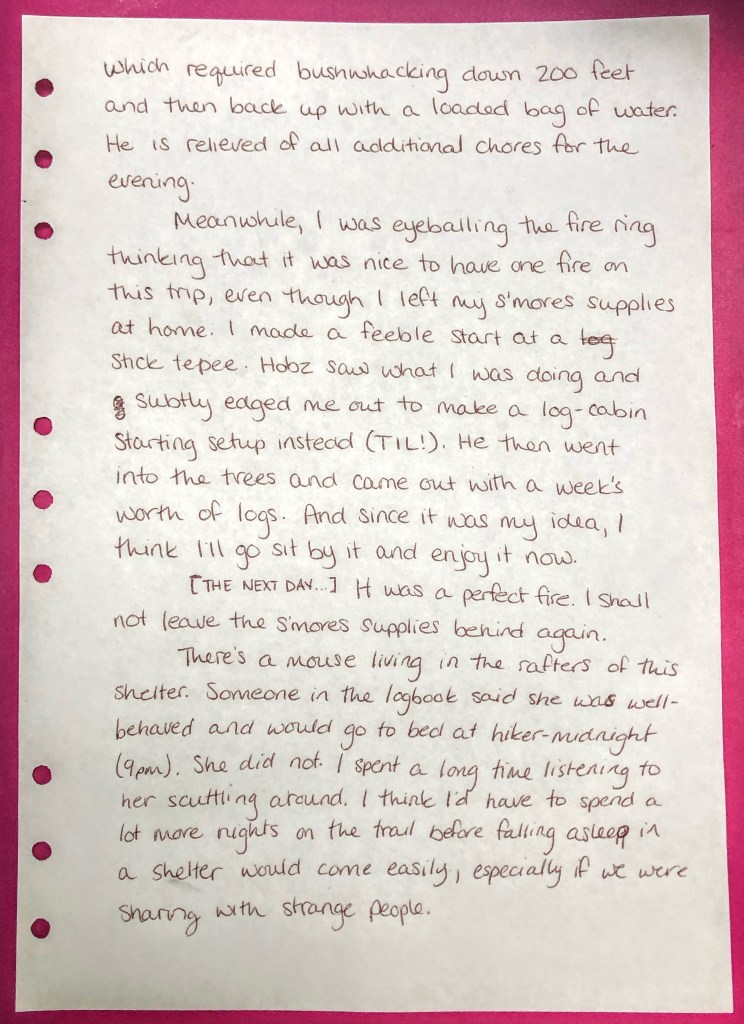 which required bushwhacking down 200 feet
and then back up with a loaded bag of water.
He is relieved of all additional chores for the
evening.
Meanwhile, I was eyeballing the fire ring
thinking that it was nice to have one fire on
this trip, even though I left my s'mores supplies
at home. I made a feeble start at a log
stick tepee. Hobz saw what I was doing and
subtly edged me out to make a log-cabin
starting setup instead (TIL!). He then went
into the trees and came out with a week's
worth of logs. And since it was my idea, I
think I'll go sit by it and enjoy it now.
[THE NEXT DAY...] It was a perfect fire. I shall
not leave the s'mores supplies behind again.
There's a mouse living in the rafters of this
shelter. Someone in the logbook said she was well-
behaved and would go to bed at hiker-midnight
(9pm). She did not. I spent a long time listening to
her scuttling around. I think I'd have to spend a
lot more nights on the trail before falling asleep in
a shelter would come easily, especially if we were
sharing with strange people.